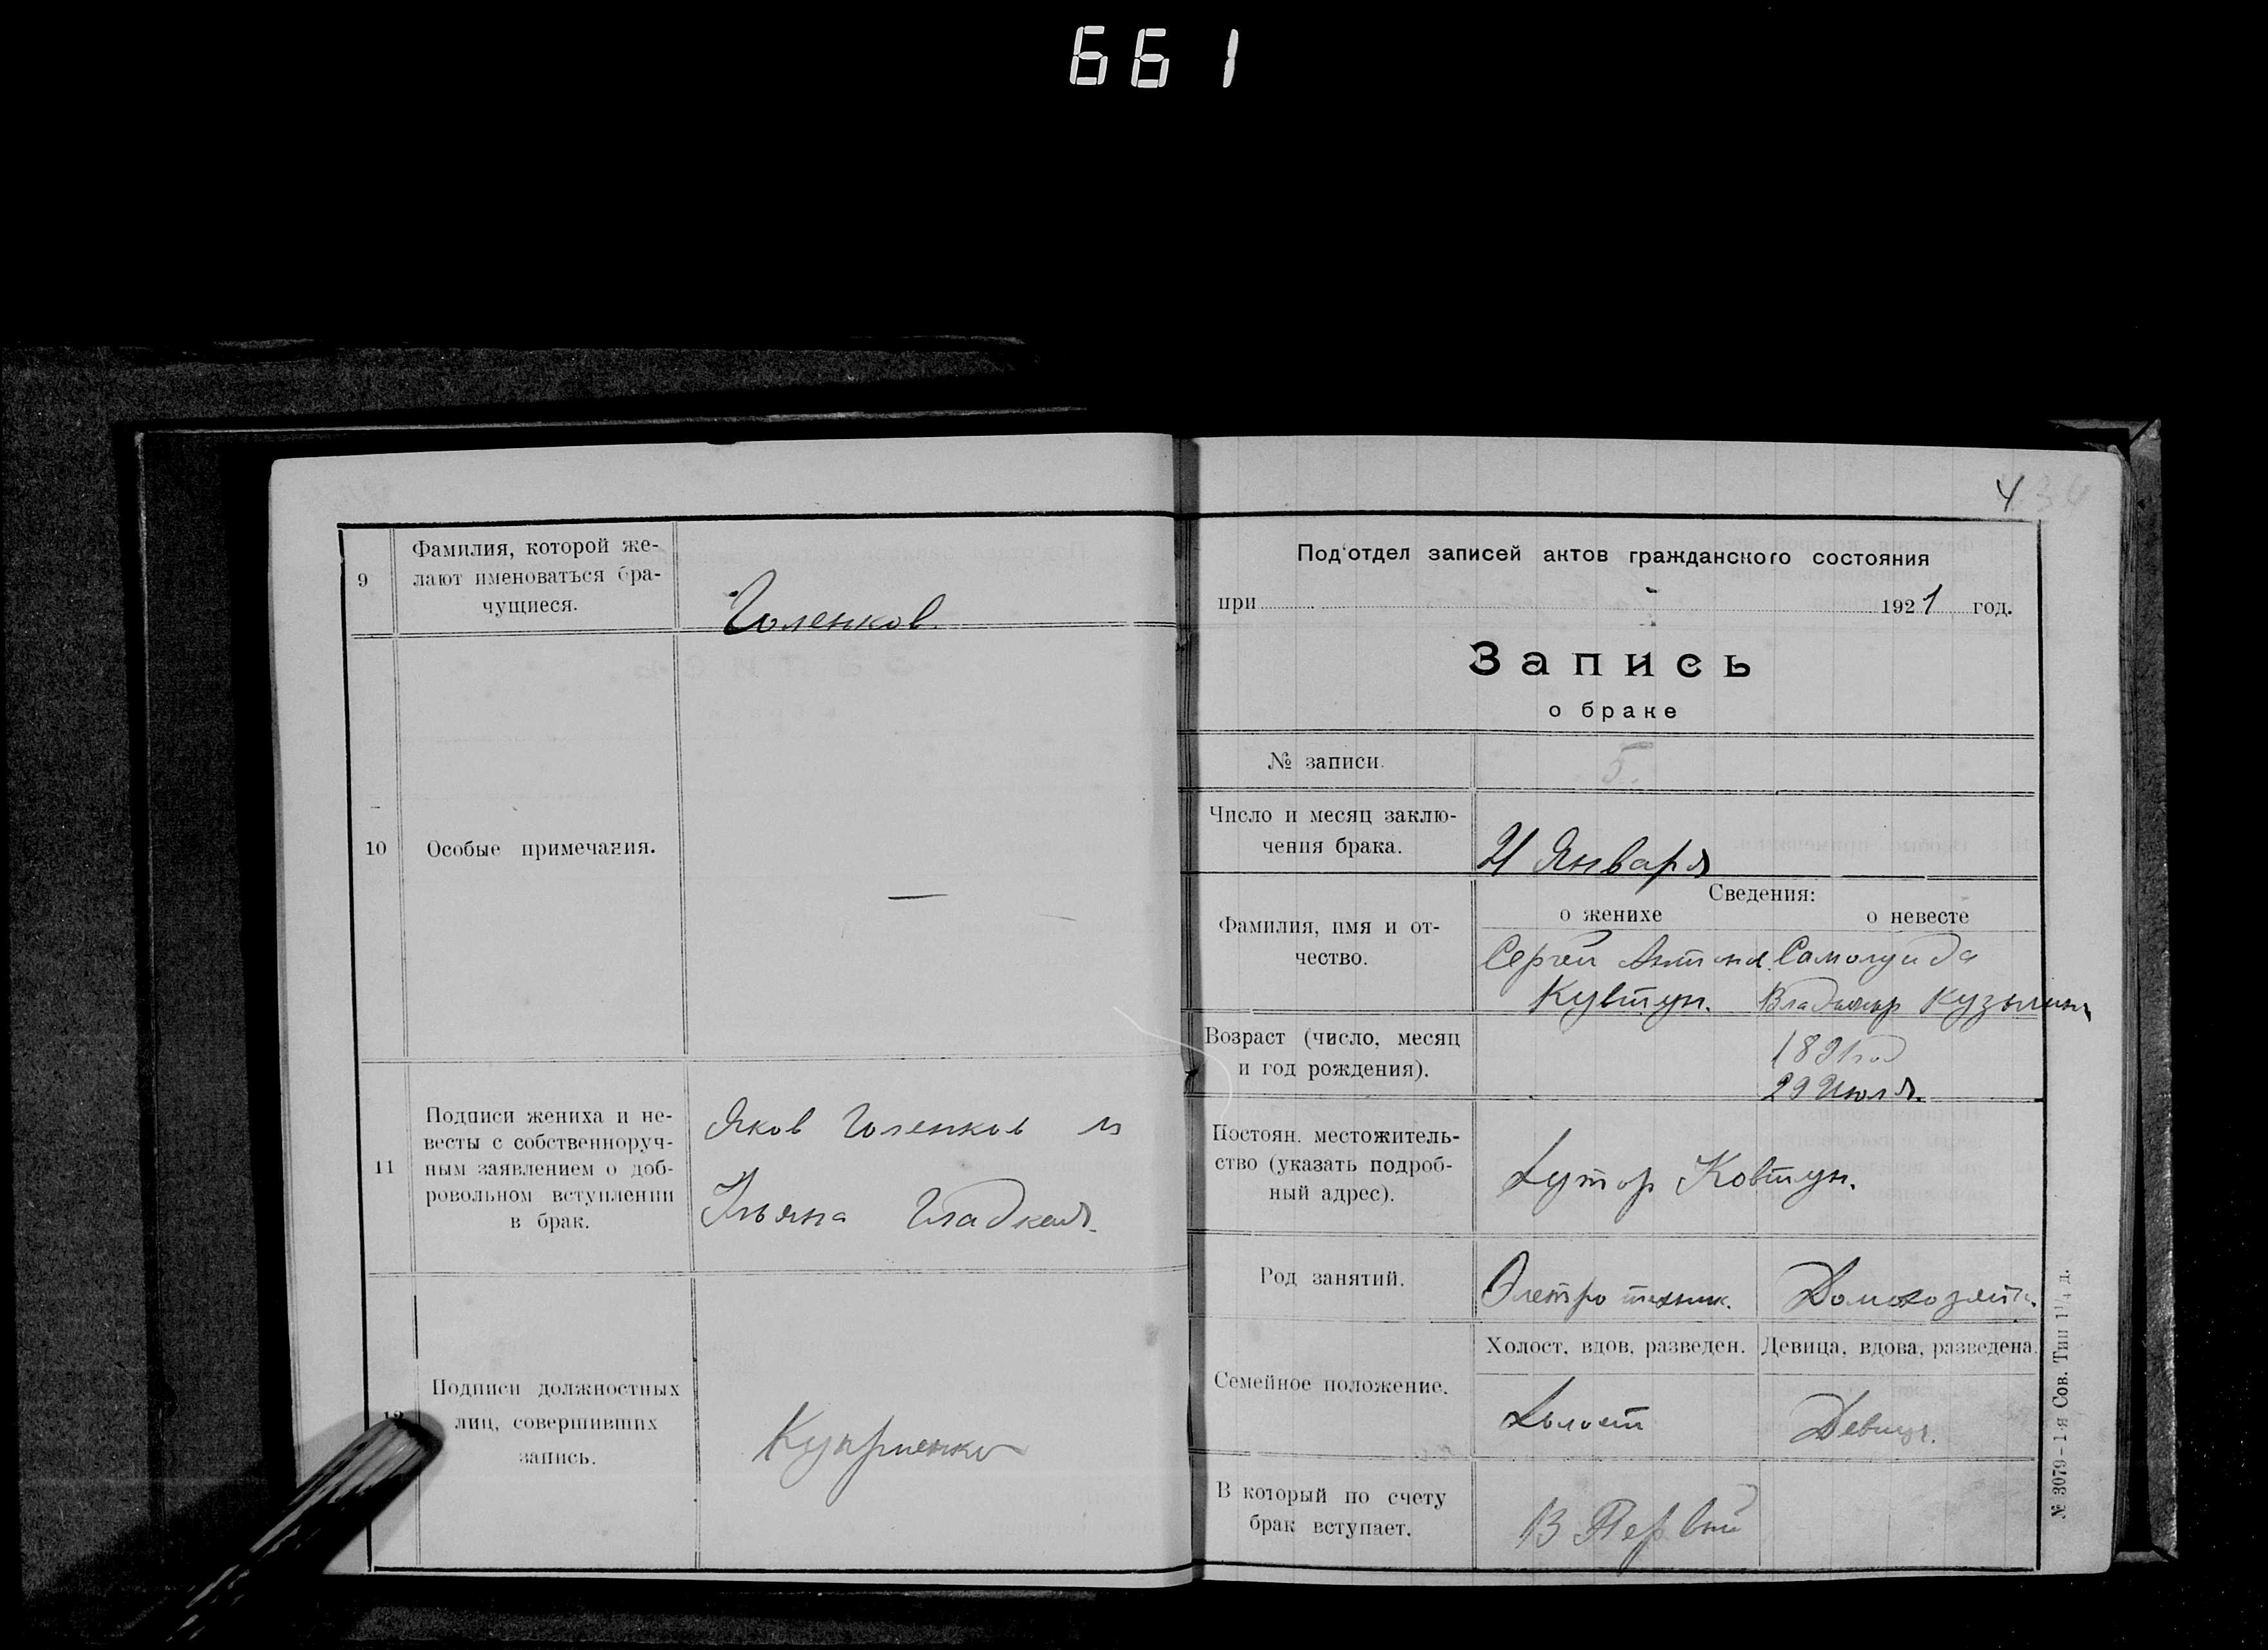 661
9
Фамилия, которой же-
лают именоваться бра-
чущиеся.
Голенков.
10
Особые примечания.
—
11
Подписи жениха и не-
весты с собственноруч-
ным заявлением о доб-
ровольном вступлении
в брак.
Яков Голенков и
Ульяна Гладкая.
12
Подписи должностных
лиц, совершивших
запись.
Куприенко
4
Под'отдел записей актов гражданского состояния
при 1921 год.
Запись
о браке
№ записи.
5.
Число и месяц заклю-
чения брака.
21 Января
Сведения:
о женихе
о невесте
Фамилия, имя и от-
чество.
Сергей Антон.
Кувтун.
Владимир Кузьмин
Возраст (число, месяц
и год рождения).
1891 год
29 Июля.
Постоян. местожитель-
ство (указать подроб-
ный адрес).
Хутор Ковтун.
Род занятий.
Электро техник.
Домохозяйка.
Семейное положение.
Холост, вдов, разведен.
Девица, вдова, разведена.
Холост
Девица.
В который по счету
брак вступает.
В Первый
№ 3079–1-я Сов. Тип 1¼ д.